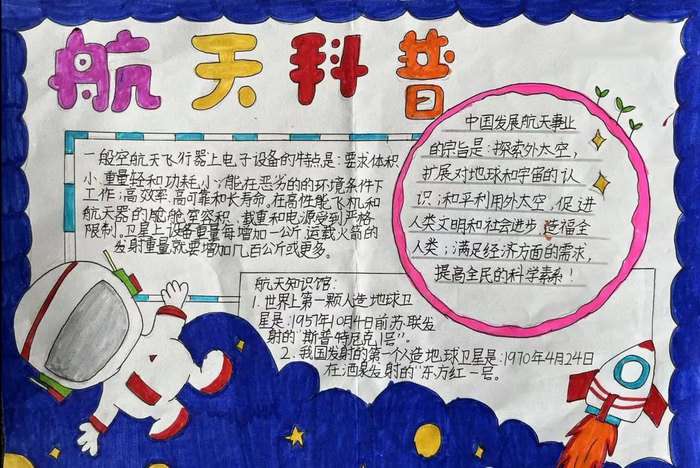 航天科普
一段空航天飞行器上电子设备的特点是:要求体积
小.重量轻和功耗小;能在恶劣的的环境条件下
工作;高效率.高可靠和长寿命.在高性能飞机和
航天器的 舱室容积、载重和电源受到严格
限制.卫星上设备重量每增加一公斤,运载火箭的
发射重量就要增加几百公斤或更多。
中国发展航天事业
的宗旨是:探索外太空,
扩展对地球和宇宙的认
识;和平利用外太空,促进
人类文明和社会进步,造福全
人类;满足经济方面的需求,
提高全民的科学素系!
航天知识馆:
1.世界上第一颗人造地球卫
星是:1957年10月4日前苏联发
射的"斯普特尼克1号"。
2.我国发射的第一个人造地球卫星是:1970年4月24日
在酒泉发射的"东方红一号。